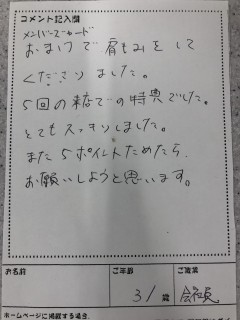 コメント記入欄
メンバーズカード
おまけで肩もみをして
くださりました。
5回の来店での特典でした。
とてもスッキリしました。
また5ポイントためたら
お願いしようと思います。
お名前 ご年齢 ご職業
31歳 会社員
ホームページに掲載する場合